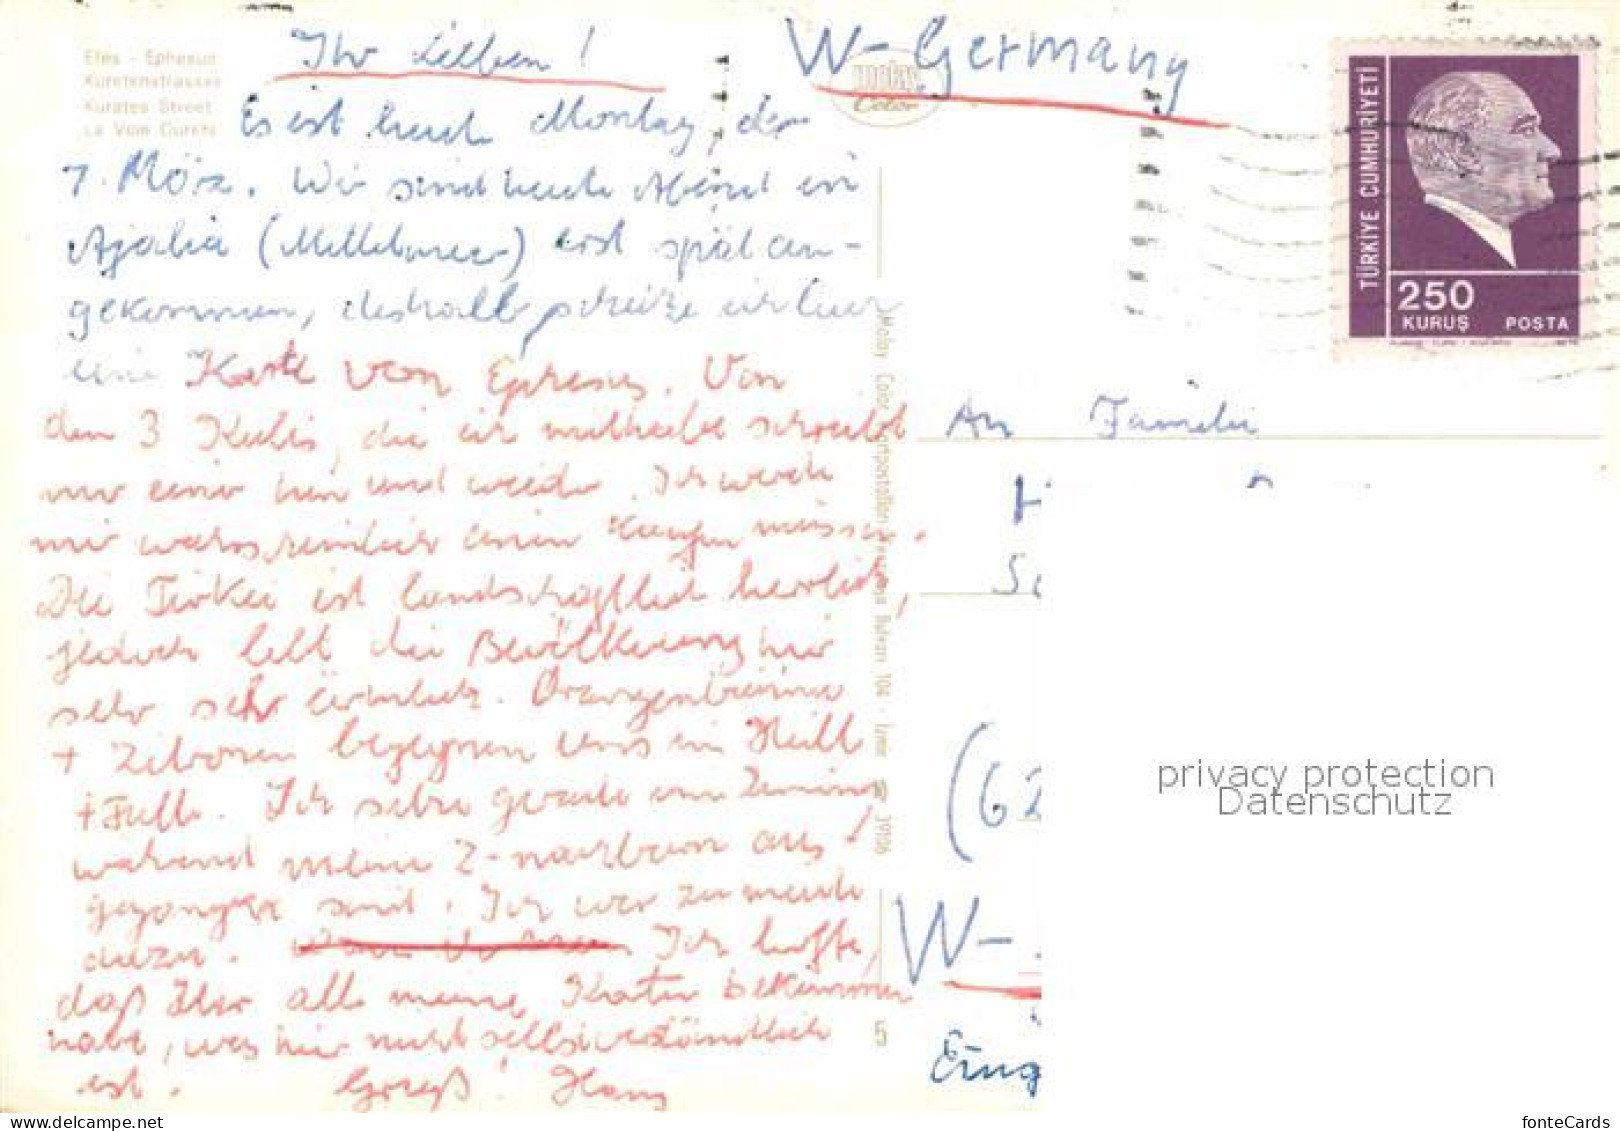 Efes - Ephesus
Kuretenstrasse
Kuretes Street
La Voie Curets
Ihr Lieben!
Es ist heute Montag, der
7. März. Wir sind heute Abend in
(Mittelmeer) erst spät an-
gekommen, deshalb schreibe ich hier
eine Karte von Ephesus. Von
den 3 Kulis, die ich mithabe schreibt
nur einer hin und wieder. Ich werde
mir wahrscheinlich einen kaufen müssen.
Die Türkei ist landschaftlich herrlich,
jedoch lebt die Bevölkerung hier
sehr sehr ärmlich. Orangenbäume
+ Zitronen begegnen uns in Hüll
+ Fülle. Ich sitze gerade im Zimmer
während meine Z-nachbarn aus-
gegangen sind. Ich war zu müde
dazu. Ich hoffe,
daß Ihr all meine Karten bekommen
habt, was hier nicht selbstverständlich
ist. Gruß! Hans
motay
Color
5
W-Germany
TÜRKİYE CUMHURİYETİ
250
KURUŞ POSTA
An Familie
(62
W-
Eing
privacy protection
Datenschutz
fonteCards